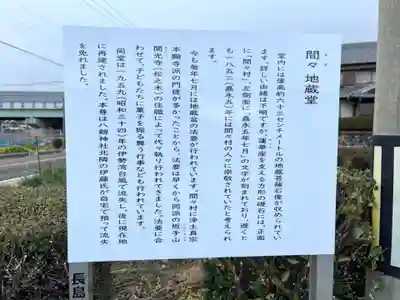 間々地蔵堂
堂内には像高約六十三センチメートルの地蔵菩薩石像が収められてい
ます。詳しい由緒は不明ですが、蓮華座を支える方形の礎石には、正面
に「間々村」、左側面に「嘉永五年七月」の文字が刻まれており、遅くと
も一八五二(嘉永五)年には間々村の人々に崇敬されていたと考えられ
ます。
今も毎年七月には地蔵盆の法要が行われています。間々村に浄土真宗
本願寺派の門徒が多かったことから、法要は早くから同派の坂手山
聞光寺(松之木)の住職によって代々執り行われてきました。法要に合
わせて、子どもたちに菓子を振る舞う行事なども行われています。
尚堂は一九五九(昭和三十四)年の伊勢湾台風で流失し、後に現在地
に再建されました。本尊は八剱神社北隣の伊藤氏が自宅で預って流失
を免れました。
長島